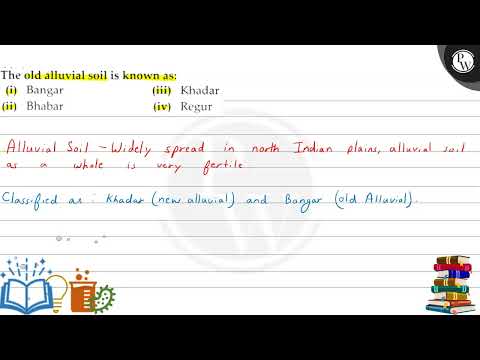 The old alluvial soil is known as:
(i) Bangar (iii) Khadar
(ii) Bhabar (iv) Regur
Alluvial Soil - Widely spread in north Indian plains, alluvial soil
as a whole is very fertile
Classified as : Khadar (new alluvial) and Bangar (old Alluvial).